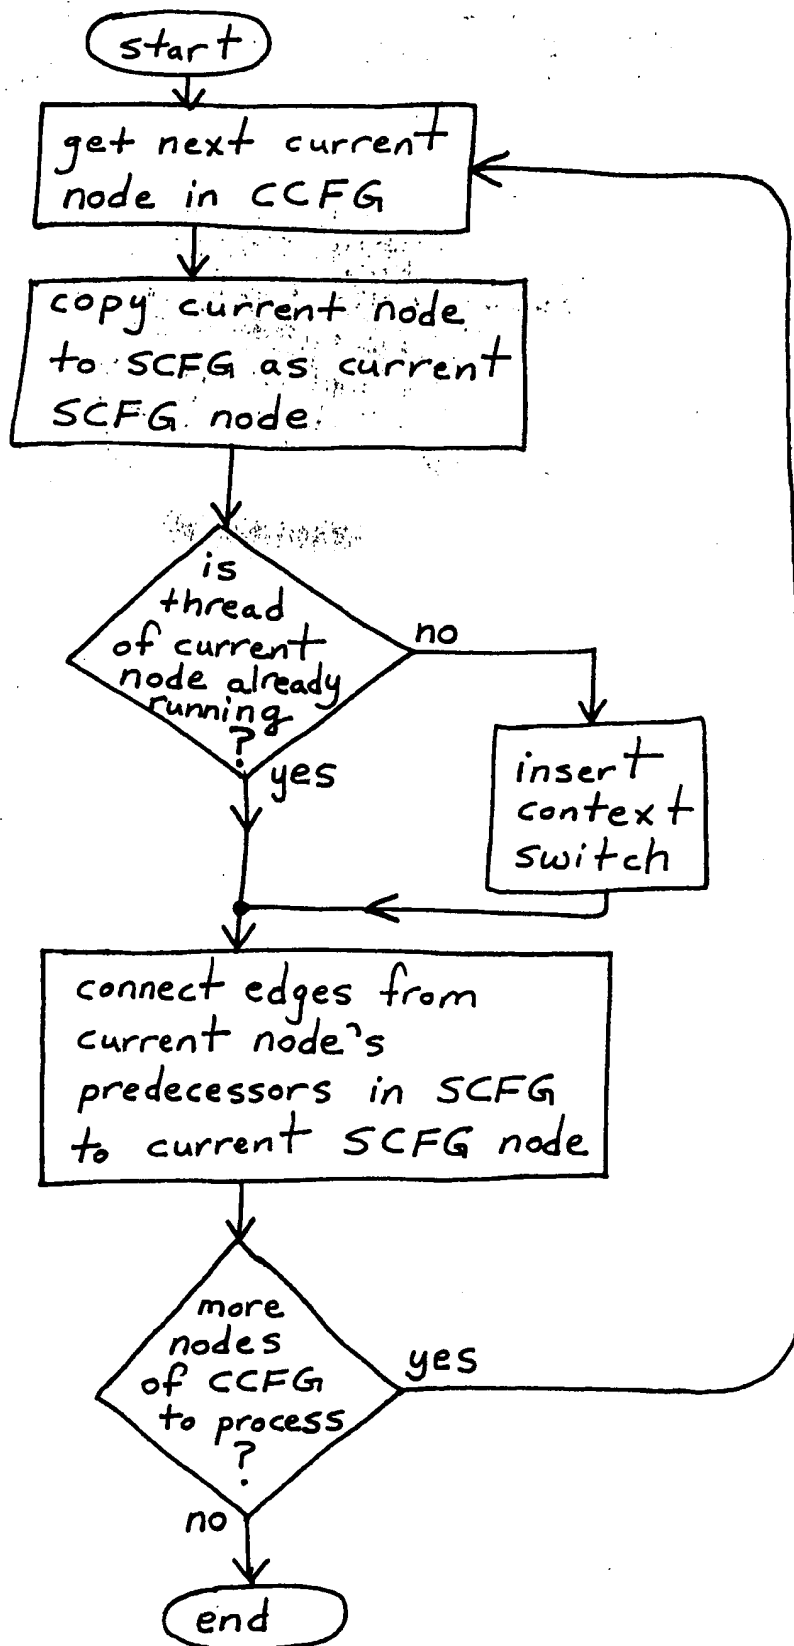 start
get next current
node in CCFG
copy current node
to SCFG as current
SCFG node
is
thread
of current
node already
running
?
no
yes
insert
context
switch
connect edges from
current node's
predecessors in SCFG
to current SCFG node
more
nodes
of CCFG
to process
?
yes
no
end